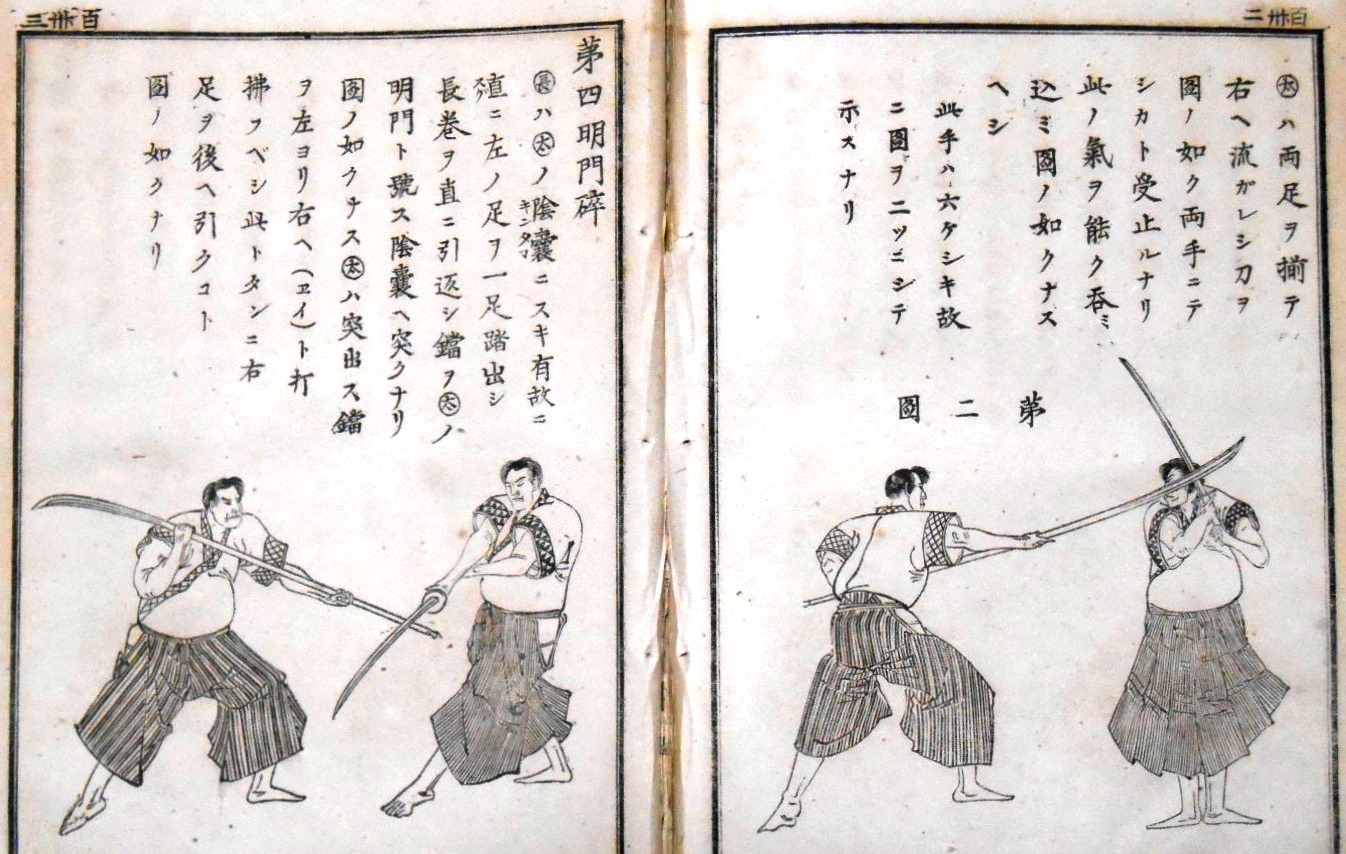 百卅二
㊍ハ両足ヲ揃テ
右ヘ流ガレシ刀ヲ
圖ノ如ク両手ニテ
シカト受止ルナリ
此ノ氣ヲ能ク呑ミ
込ミ圖ノ如クナス
ヘシ
此手ハ六ケシキ故
ニ圖ヲ二ツニシテ
示スナリ
第二圖
百卅三
第四明門碎
長ハ太ノ陰嚢ニスキ有故ニ
キンタマ
直ニ左ノ足ヲ一足踏出シ
長巻ヲ直ニ引返シ鐺ヲ太ノ
明門ト號ス陰嚢ヘ突クナリ
圖ノ如クナス太ハ突出ス鐺
ヲ左ヨリ右ヘ(ヱイ)ト打
拂フベシ此トタンニ右
足ヲ後ヘ引クコト
圖ノ如クナリ